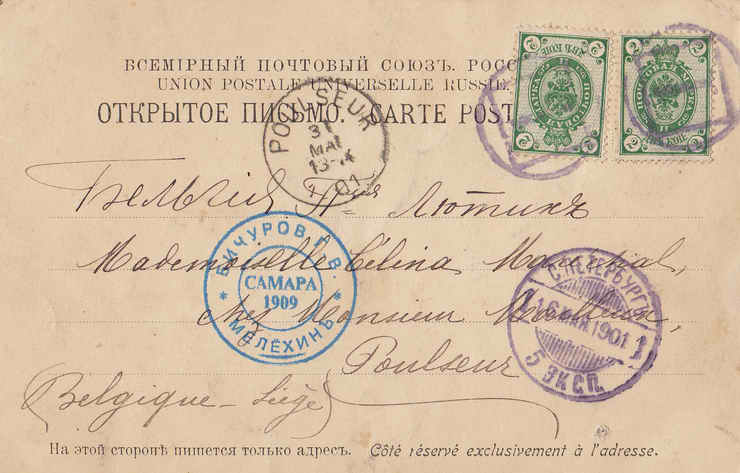 ВСЕМІРНЫЙ ПОЧТОВЫЙ СОЮЗЪ. РОСС
UNION POSTALE UNIVERSELLE RUSSIE.
ОТКРЫТОЕ ПИСЬМО. CARTE POST
2 2
2 2
POULSEUR
31
MAI
13-14
01
Бельгія Лютихъ
Mademoiselle Célina Maréchal,
chez Monsieur
Poulseur
Belgique - Liége
БИЧУРОВ Г. В.
САМАРА
1909
* МЕЛЁХИНЪ *
С.ПЕТЕРБУРГЪ
16 МАЯ 1901
5 ЭКСП. 1
На этой сторонѣ пишется только адресъ. Côté réservé exclusivement à l'adresse.